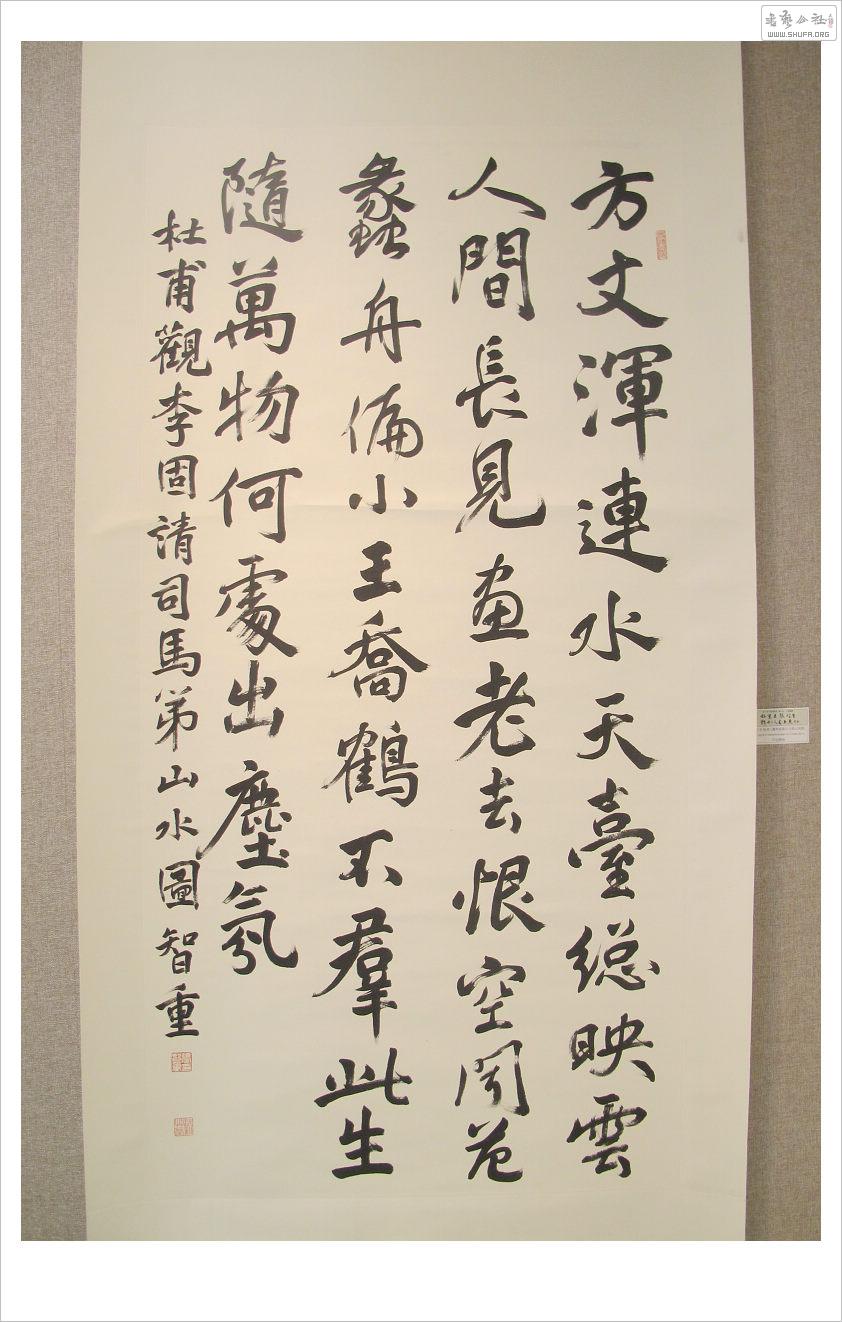 方丈渾連水天臺總映雲
人間長見画老去恨空聞范
蠡舟偏小王喬鶴不羣此生
隨萬物何處出塵氛
杜甫觀李固請司馬弟山水圖智重
書藝公社
WWW.SHUFA.ORG